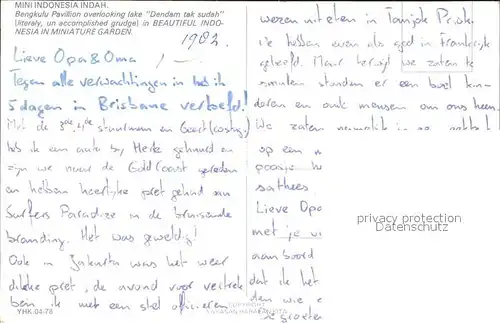 MINI INDONESIA INDAH.
Bengkulu Pavillion overlooking lake "Dendam tak sudah"
(literaly, un accomplished grudge) in BEAUTIFUL INDO-
NESIA IN MINIATURE GARDEN.
1982
Lieve Opa & Oma
Tegen alle verwachtingen in heb ik
5 dagen in Brisbane vertoefd!
Met de 3de, 4de stuurman en Geert
heb ik een auto bij Hertz gehuurd en
zijn we naar de Gold Coast gereden
en hebben heerlijke pret gehad aan
Surfers Paradise in de bruisende
branding. Het was geweldig!
Ook in Jakarta was het weer
dikke pret, de avond voor vertrek
ben ik met een stel officieren
YHK 04-78
wezen uit eten in Tanjok Priok.
We hebben even als god in Frankrijk
geleefd. Maar terwijl we zaten te
smullen stonden er een boel kin-
deren en oude mensen om ons heen.
We zaten
op een
Lieve Opa
met je
aan boord
dat ik het
den wie
De groeten
privacy protection
Datenschutz
COPYRIGHT